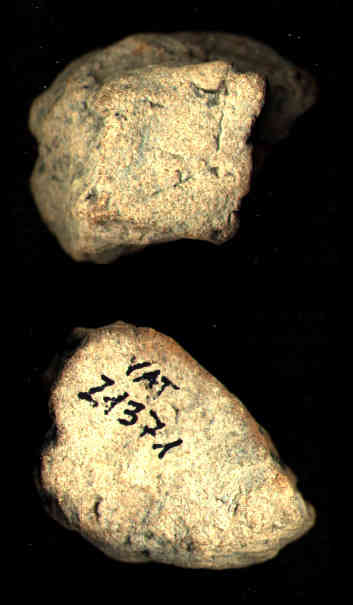 VAT
21371